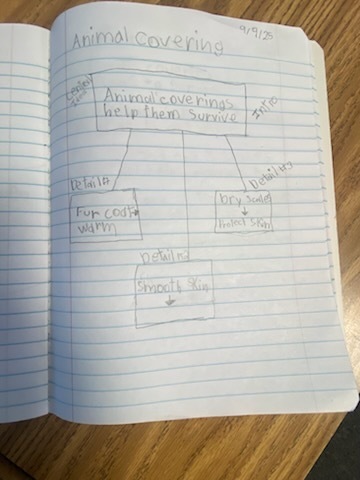 9/9/25
Animal covering
Central
Idea
Animal coverings
help them survive
Intro
Detail#1
Fur coat→
warm
Detail#3
Dry scales
↓
Protect skin
Detail#2
Smooth skin
↓